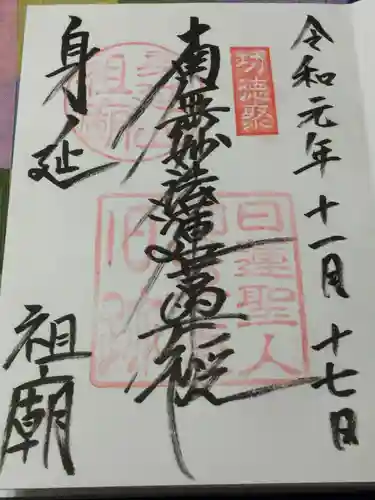 令和元年十一月十七日
功徳聚
南無妙法蓮華経
日蓮聖人
身延
祖廟